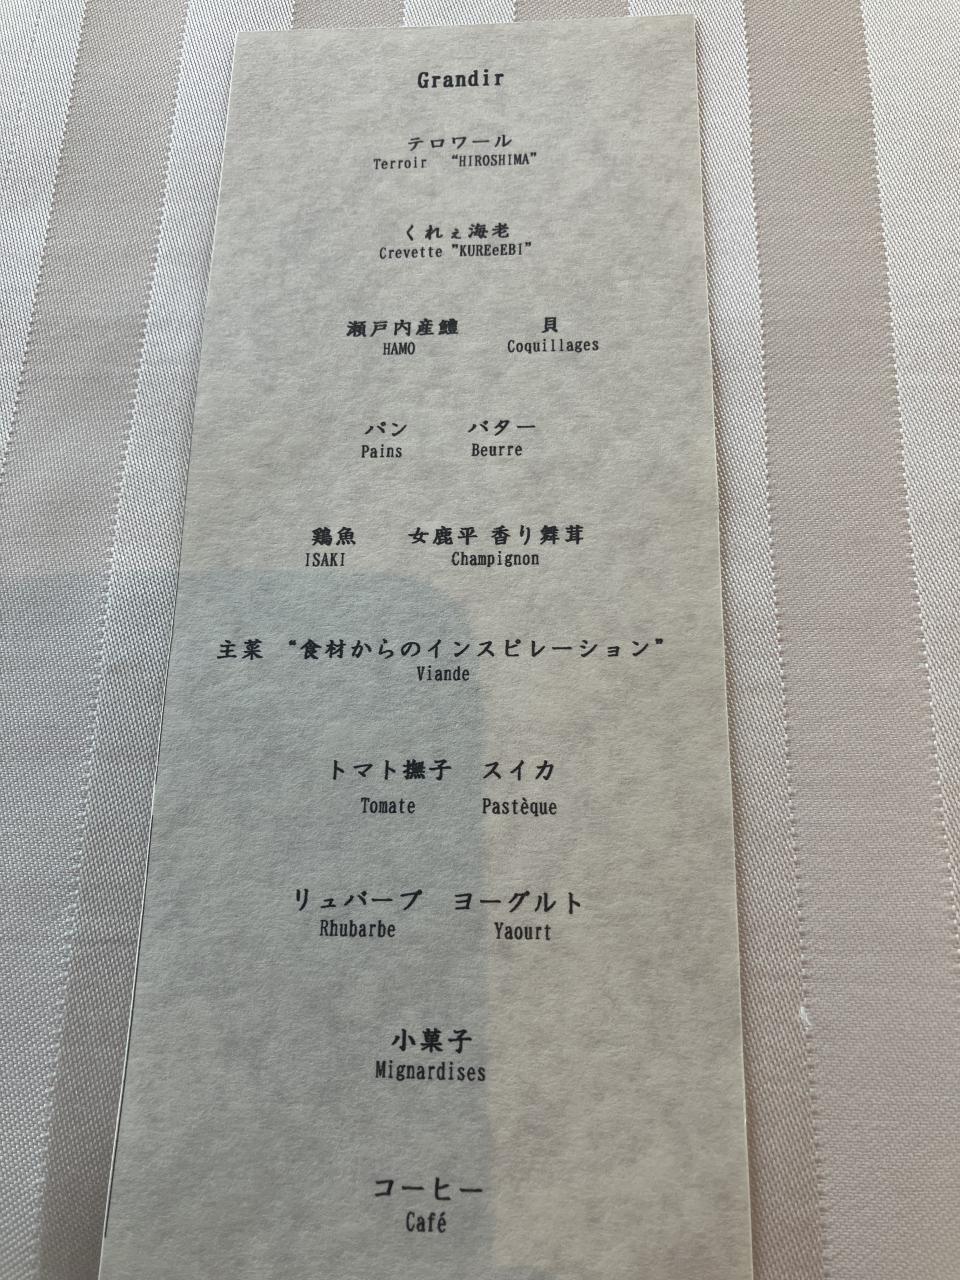 Grandir
テロワール
Terroir “HIROSHIMA”
くれぇ海老
Crevette ”KUREeEBI”
瀬戸内産鱧 貝
HAMO Coquillages
パン バター
Pains Beurre
鶏魚 女鹿平 香り舞茸
ISAKI Champignon
主菜 “食材からのインスピレーション”
Viande
トマト撫子 スイカ
Tomate Pastèque
リュバーブ ヨーグルト
Rhubarbe Yaourt
小菓子
Mignardises
コーヒー
Café